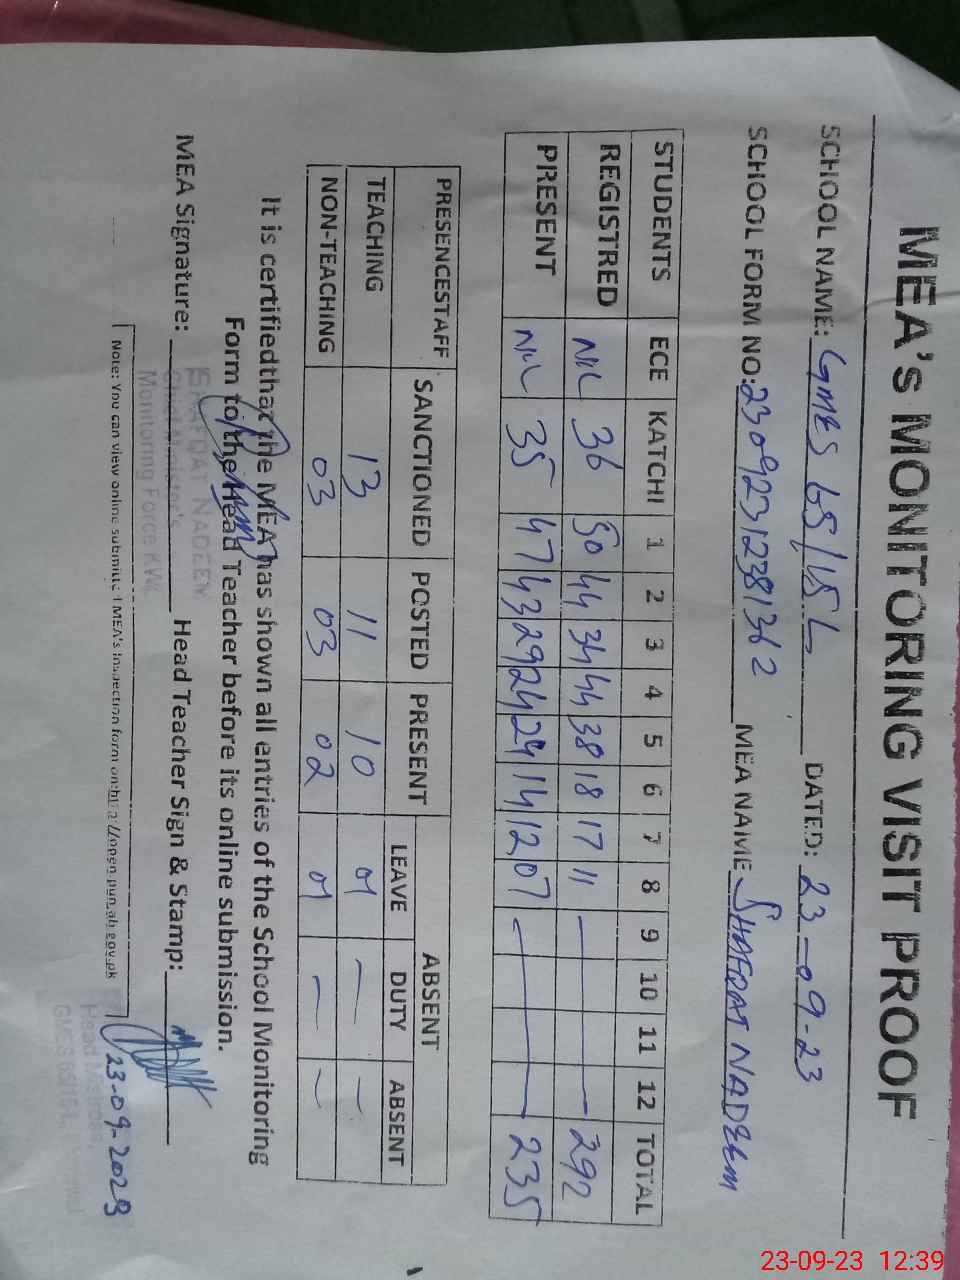 MEA's MONITORING VISIT PROOF
SCHOOL NAME: GMES 65/15 L DATED: 23-09-23
SCHOOL FORM NO: 23092312381362 MEA NAME SHAFQAT NADEEM
STUDENTS ECE KATCHI 1 2 3 4 5 6 7 8 9 10 11 12 TOTAL
REGISTRED NIL 36 50 44 34 44 38 18 17 11 — 292
PRESENT NIL 35 47 43 29 24 24 14 12 07 — 235
ABSENT
PRESENCESTAFF SANCTIONED POSTED PRESENT LEAVE DUTY ABSENT
TEACHING 13 11 10 01 — —
NON-TEACHING 03 03 02 01 — —
It is certifiedthat the MEA has shown all entries of the School Monitoring
Form to the Head Teacher before its online submission.
SHAFQAT NADEEM
Chief Minister's
Monitoring Force KWL
MEA Signature: Head Teacher Sign & Stamp:
Note: You can view online submitted MEA's Inspection form on:http://open.punjab.gov.pk
23-09-2023
Head
GMES 65/15-L
23-09-23 12:39